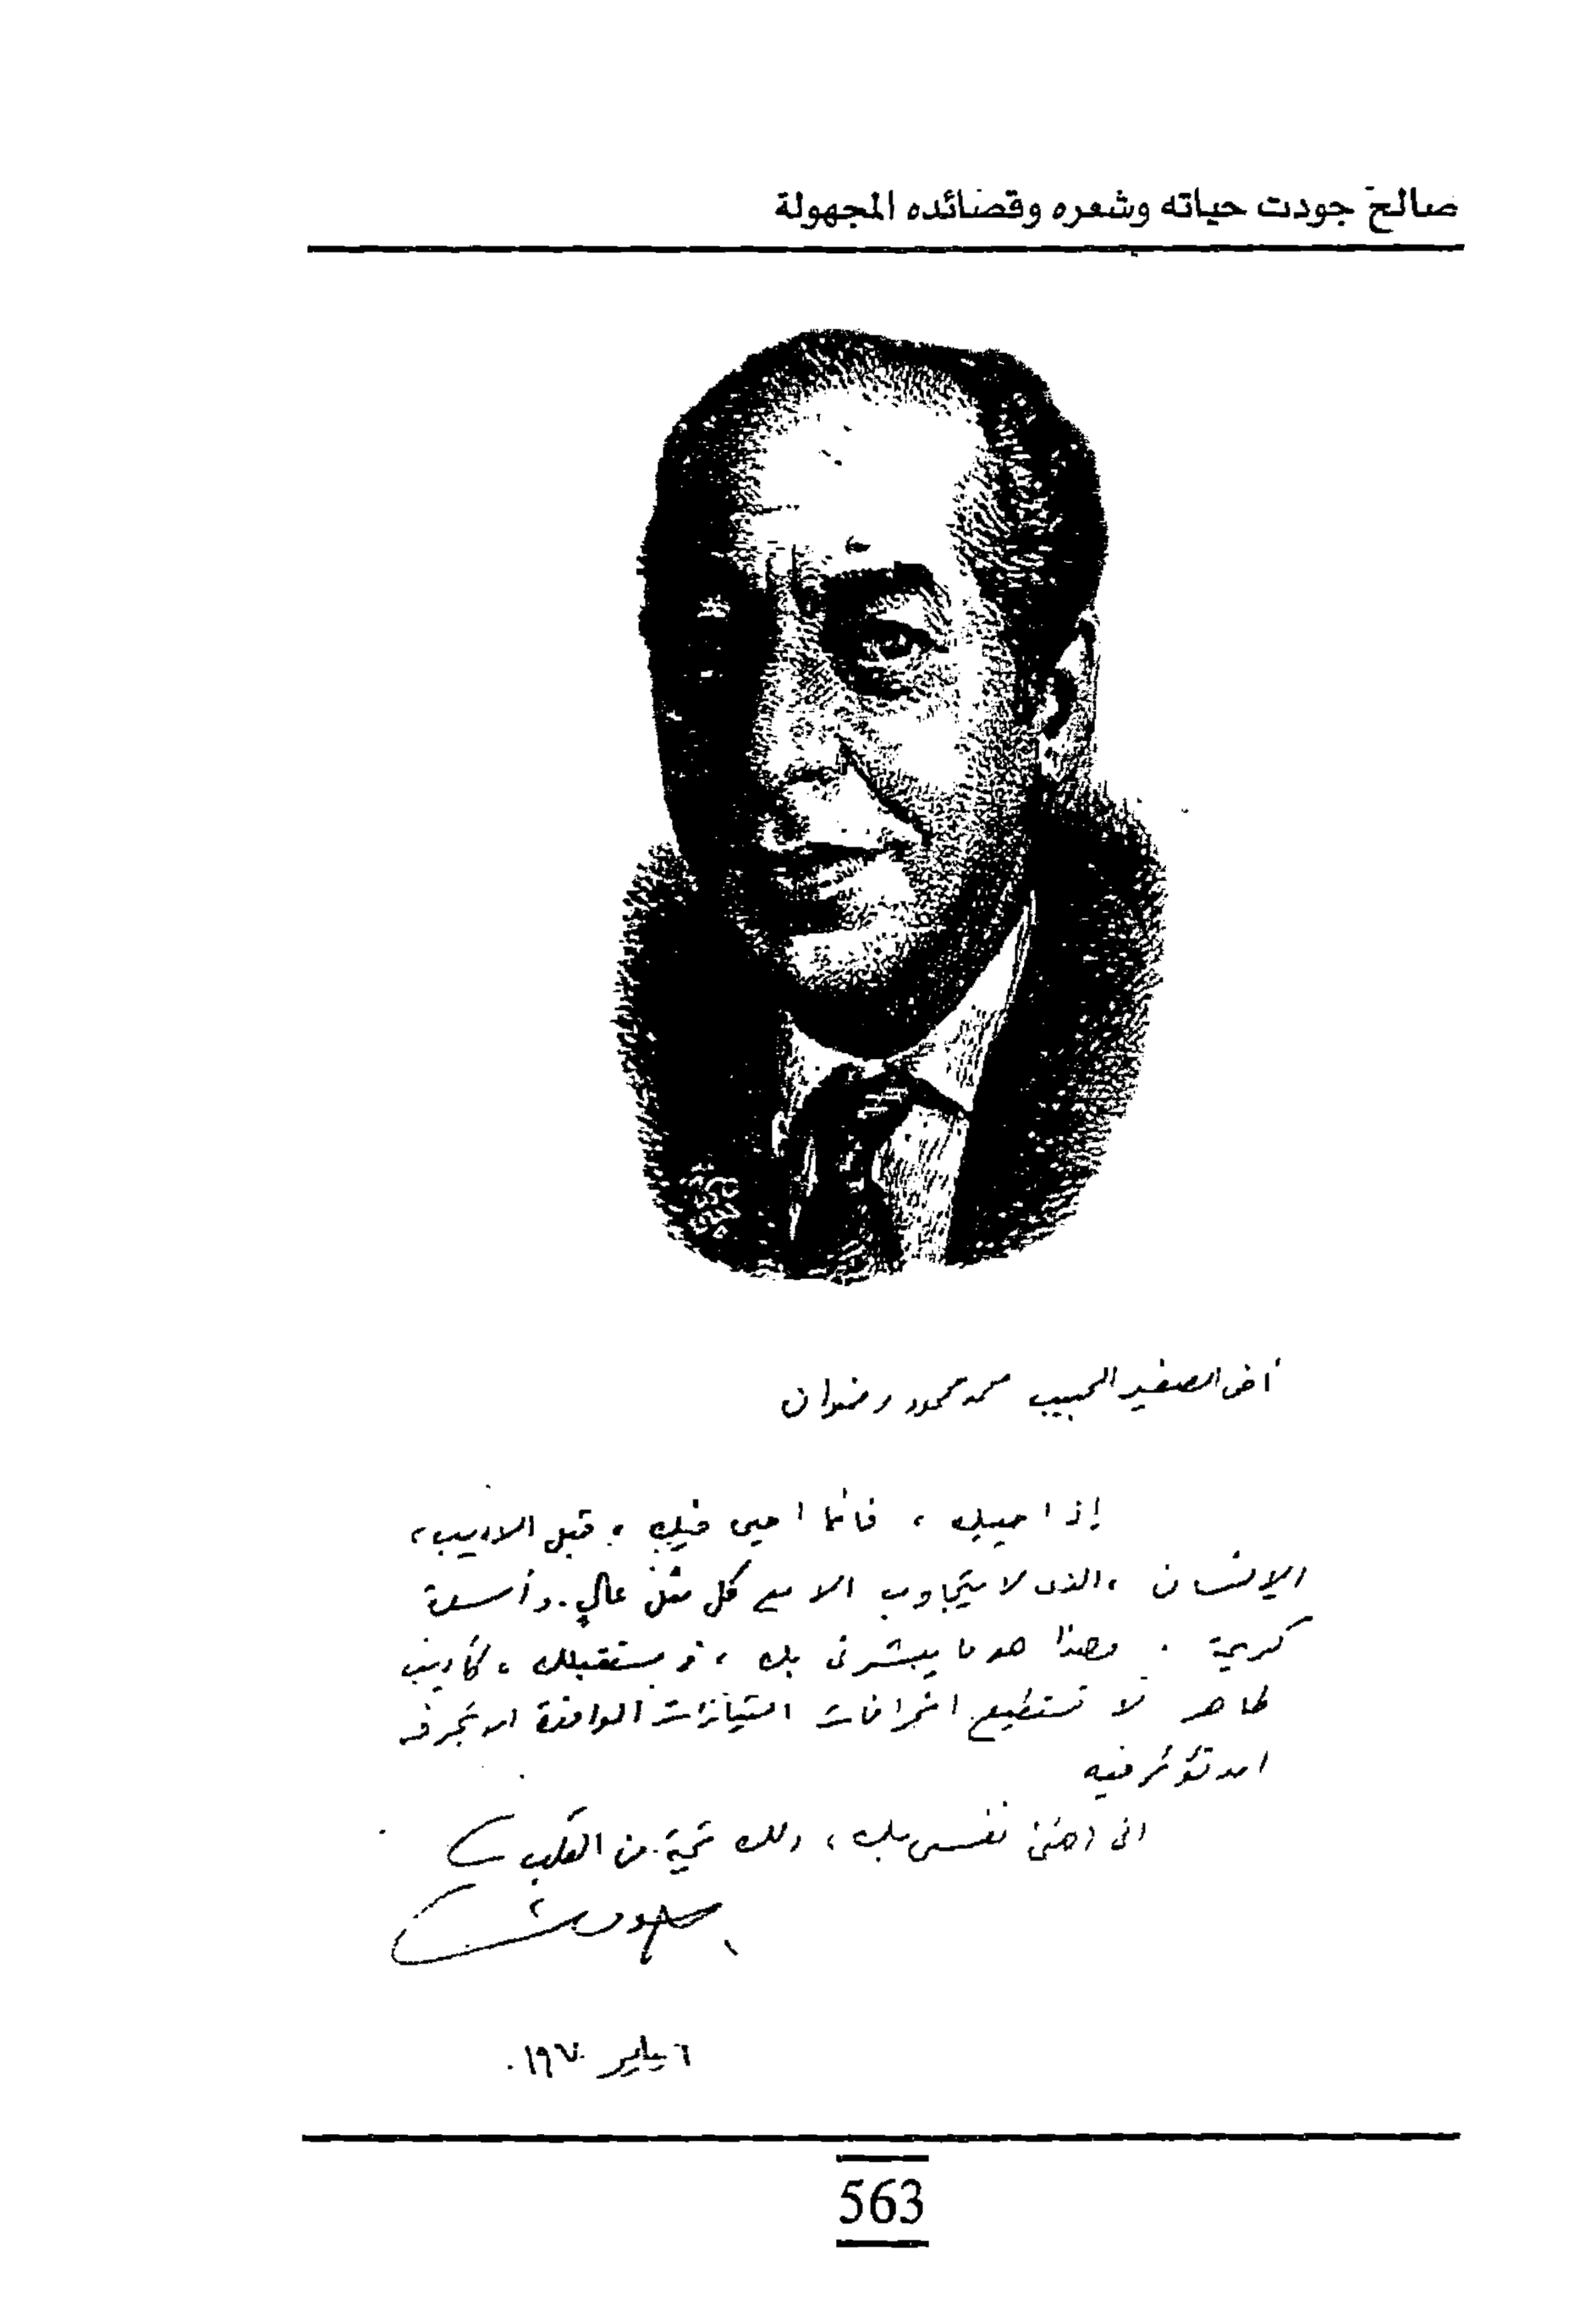 صالح جودت حياته وشعره وقصائده المجهولة
أخى الصغير الحبيب محمد محمود رضوان
إذا حييتك ، فانما احيى فيك ، قبل الاديب ،
الإنسان ، الذى لا يتجاوب الا مع كل مثل عالي . و
كريمة . وهذا هو ما يبشرنى بك ، فى مستقبلك ، كأديب
طاهر لا تستطيع انحرافات التيارات الوافدة ان تجرفه
او تؤثر فيه
انى اهنئ نفسى بك ، ولك تحية من القلب
جودت
٦ يناير ١٩٧٠
563